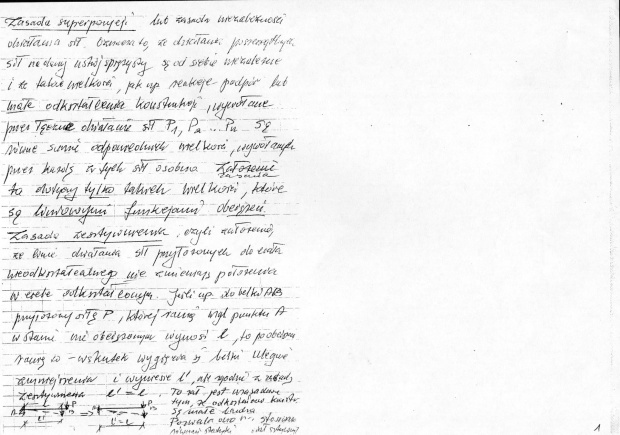 Zasada superpozycji lub zasada niezależności
działania sił. Oznacza to, że działanie poszczególnych
sił na dany ustrój sprężysty są od siebie niezależne
i że takie wielkości, jak np reakcje podpór lub
małe odkształcenia konstrukcji, wywołane
przez łączne działanie sił P1, P2 ... Pn są
równe sumie odpowiednich wielkości, wywołanych
przez każdą z tych sił osobna. Założenie
zasada
to dotyczy tylko takich wielkości, które
są liniowymi funkcjami obciążeń.
Zasada zesztywnienia, czyli założenie,
że linie działania sił przyłożonych do ciała
nieodkształcalnego nie zmieniają położenia
w ciele odkształconym. Jeśli np do belki AB
przyłożono siłę P, której ramię wzgl punktu A
w stanie nie obciążonym wynosi l, to po obciążeniu
ramię to - wskutek wygięcia się belki ulegnie
zmniejszeniu i wyniesie l', ale zgodnie z zasadą
zesztywnienia l' = l. To zał. jest uzasadnione
tym, że odkształcenia konstr.
są małe
Pozwala ono stosować
1